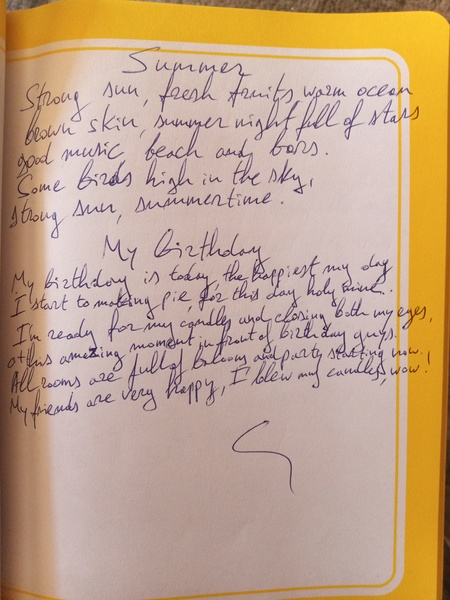 Summer
Strong sun, fresh fruits warm ocean
brown skin, summer night full of stars
good music, beach and bars.
Some birds high in the sky,
strong sun, summertime.
My birthday
My birthday is today, the happiest my day
I start to making pie, for this day holy
I'm ready for my candles and closing both my eyes,
this amazing moment in front of birthday guys.
All rooms are full of baloon and party starting now.
My friends are very happy, I blew my candles, wow!